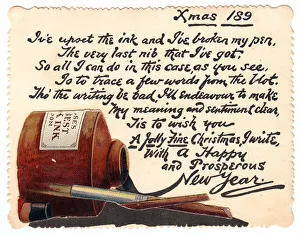 Xmas 189
I've upset the ink and I've broken my pen,
The very last nib that I've got;
So all I can do in this case, as you see,
Is to trace a few words from the blot.
Tho' the writing be bad, I'll endeavour to make
My meaning and sentiment clear,
'Tis to wish you—
A Jolly Fine Christmas, I write,
With A Happy
and Prosperous
New Year.
BEST
INK